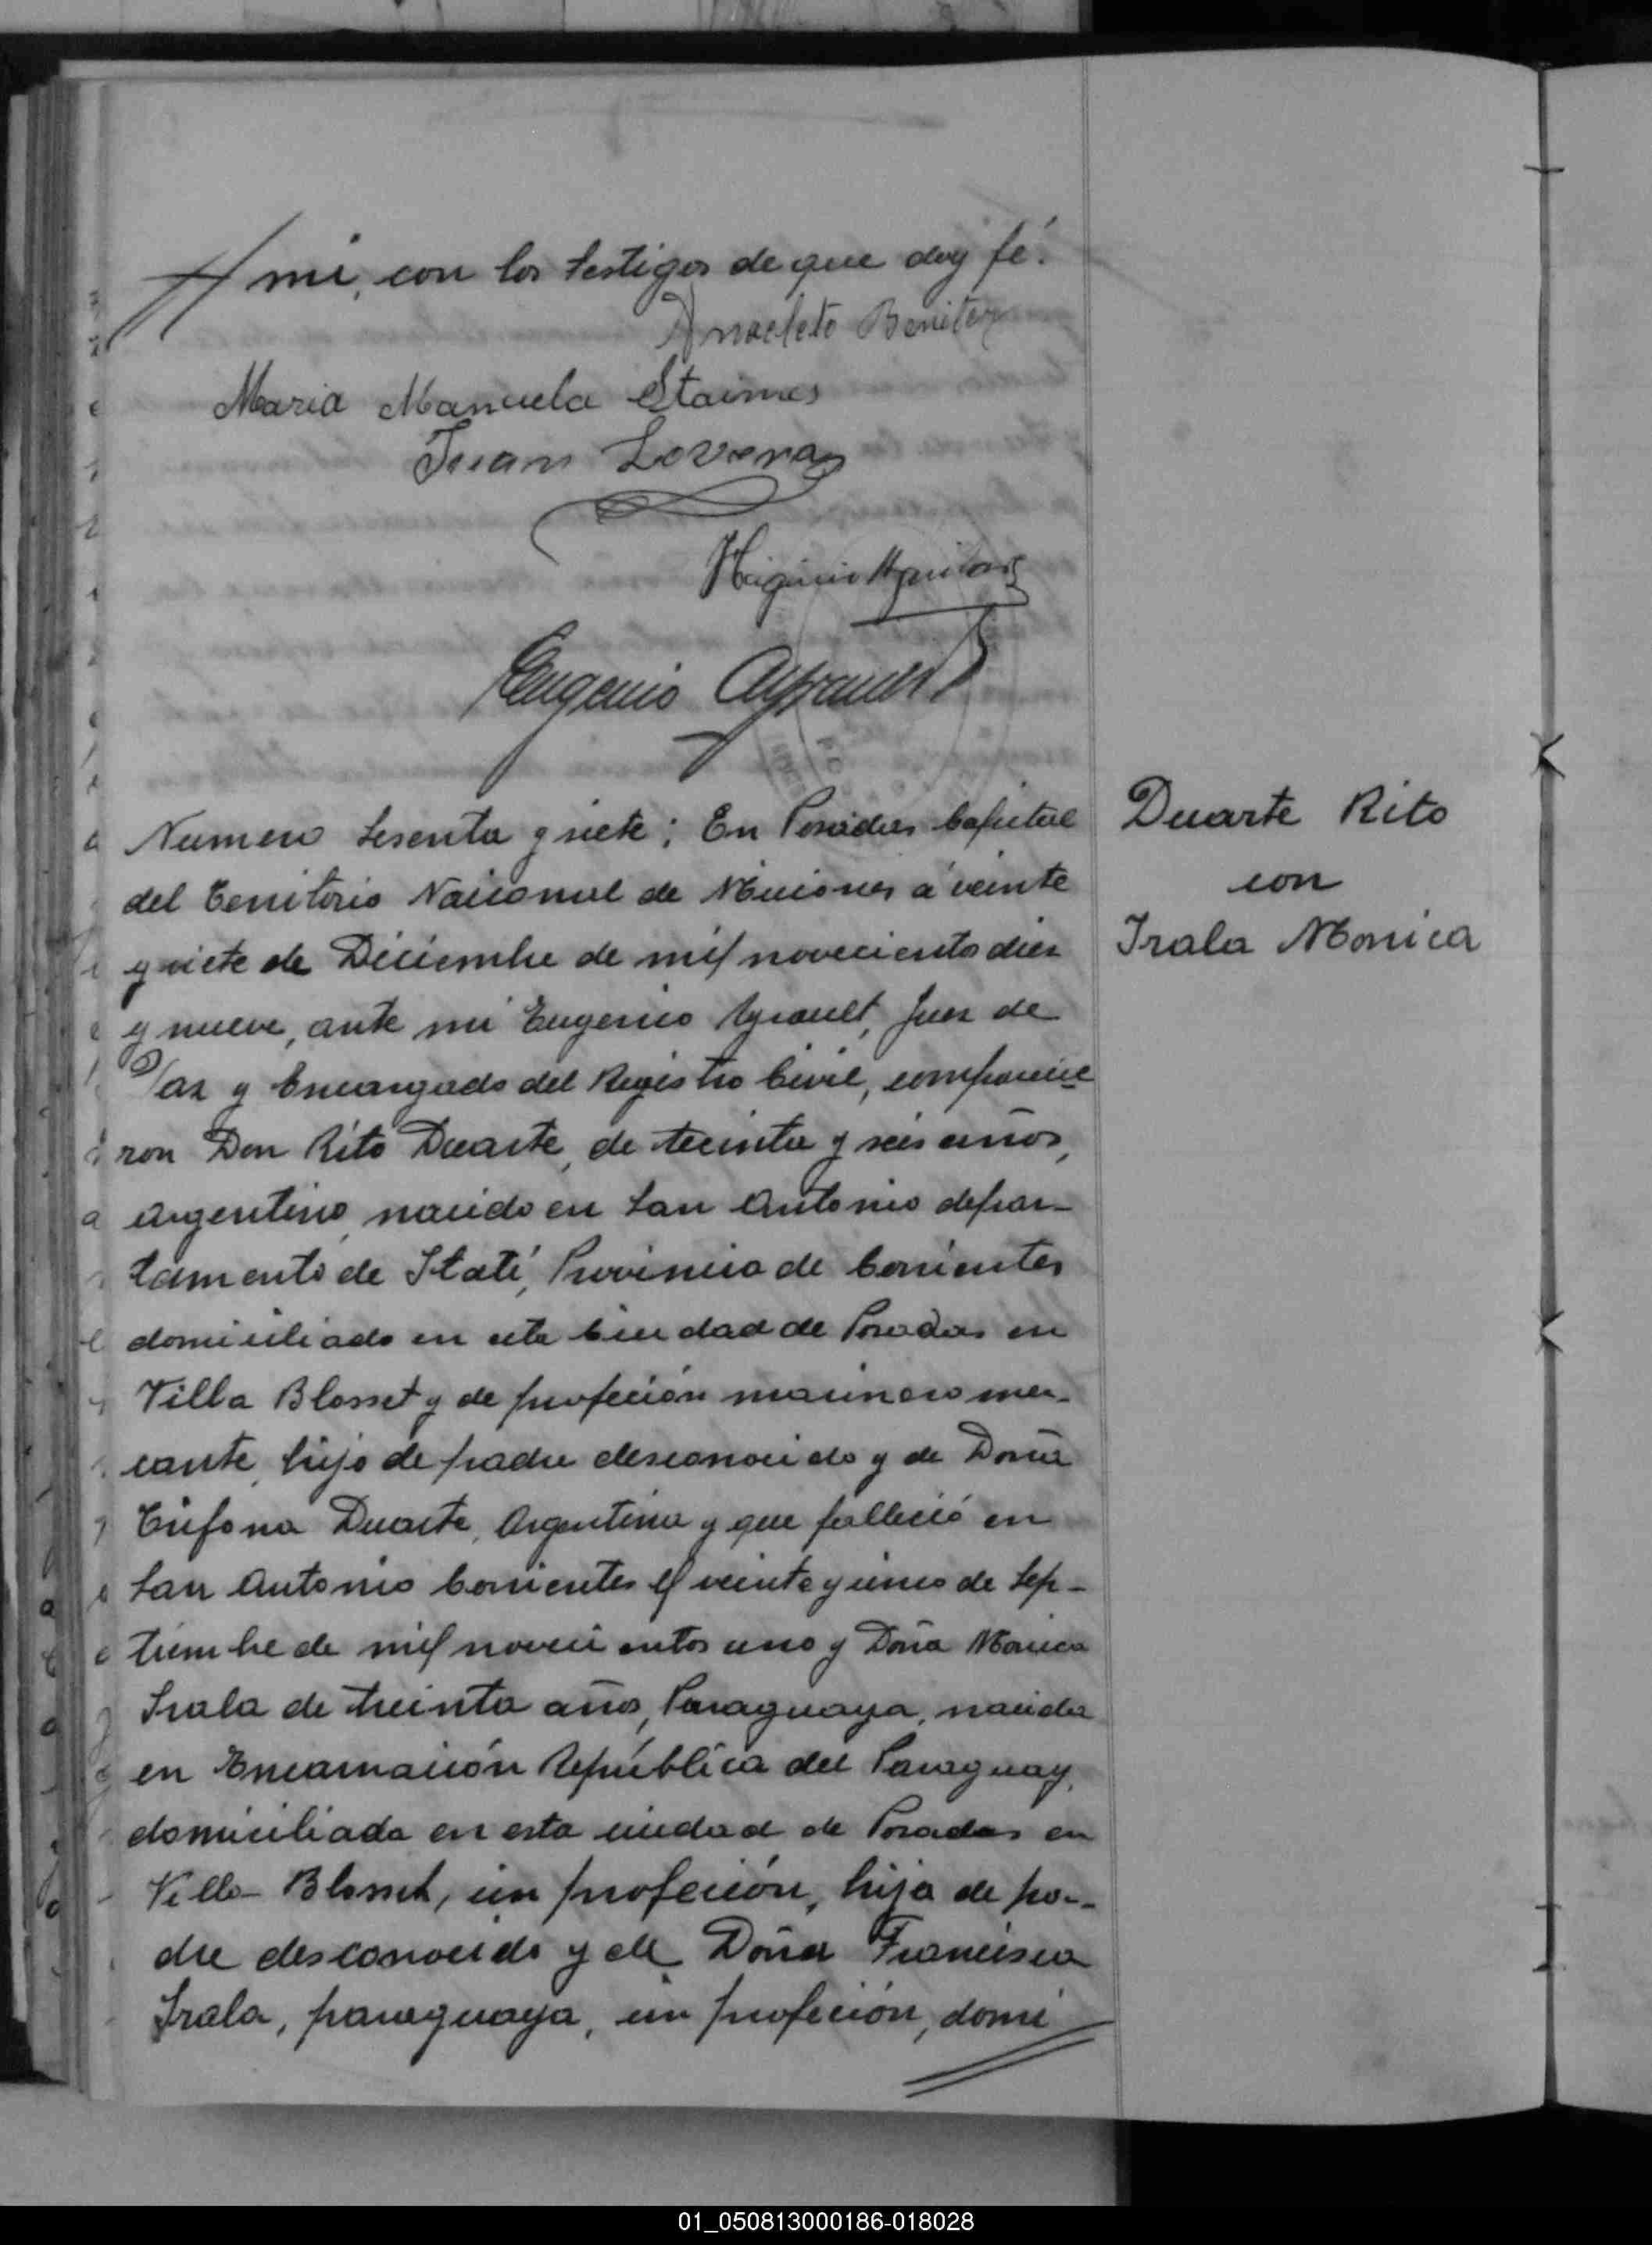 mi, con los testigos de que doy fé.
Anacleto Benitez
Maria Manuela Staimes
Juan Lovera
Higinio Aguilar
Eugenio Ayrault
Numero sesenta y siete; En Posadas Capital
del Territorio Nacional de Misiones á veinte
y siete de Diciembre de mil novecientos diez
y nueve, ante mi Eugenio Ayrault, Juez de
Paz y Encargado del Registro Civil, comparecie
ron Don Rito Duarte, de treinta y seis años,
argentino, nacido en San Antonio depar-
tamento de Itatí, Provincia de Corrientes
domiciliado en esta Ciudad de Posadas en
Villa Blosset y de profeción marinero mer-
cante, hijo de padre desconocido y de Doña
Trifona Duarte, Argentina y que falleció en
San Antonio Corrientes el veinte y cinco de Sep-
tiembre de mil novecientos uno y Doña Monica
Irala de treinta años, Paraguaya, nacida
en Encarnación República del Paraguay,
domiciliada en esta ciudad de Posadas en
Villa Blosset, sin profeción, hija de pa-
dre desconocido y de Doña Francisca
Irala, paraguaya, sin profeción, domi
Duarte Rito
con
Irala Monica
01_050813000186-018028